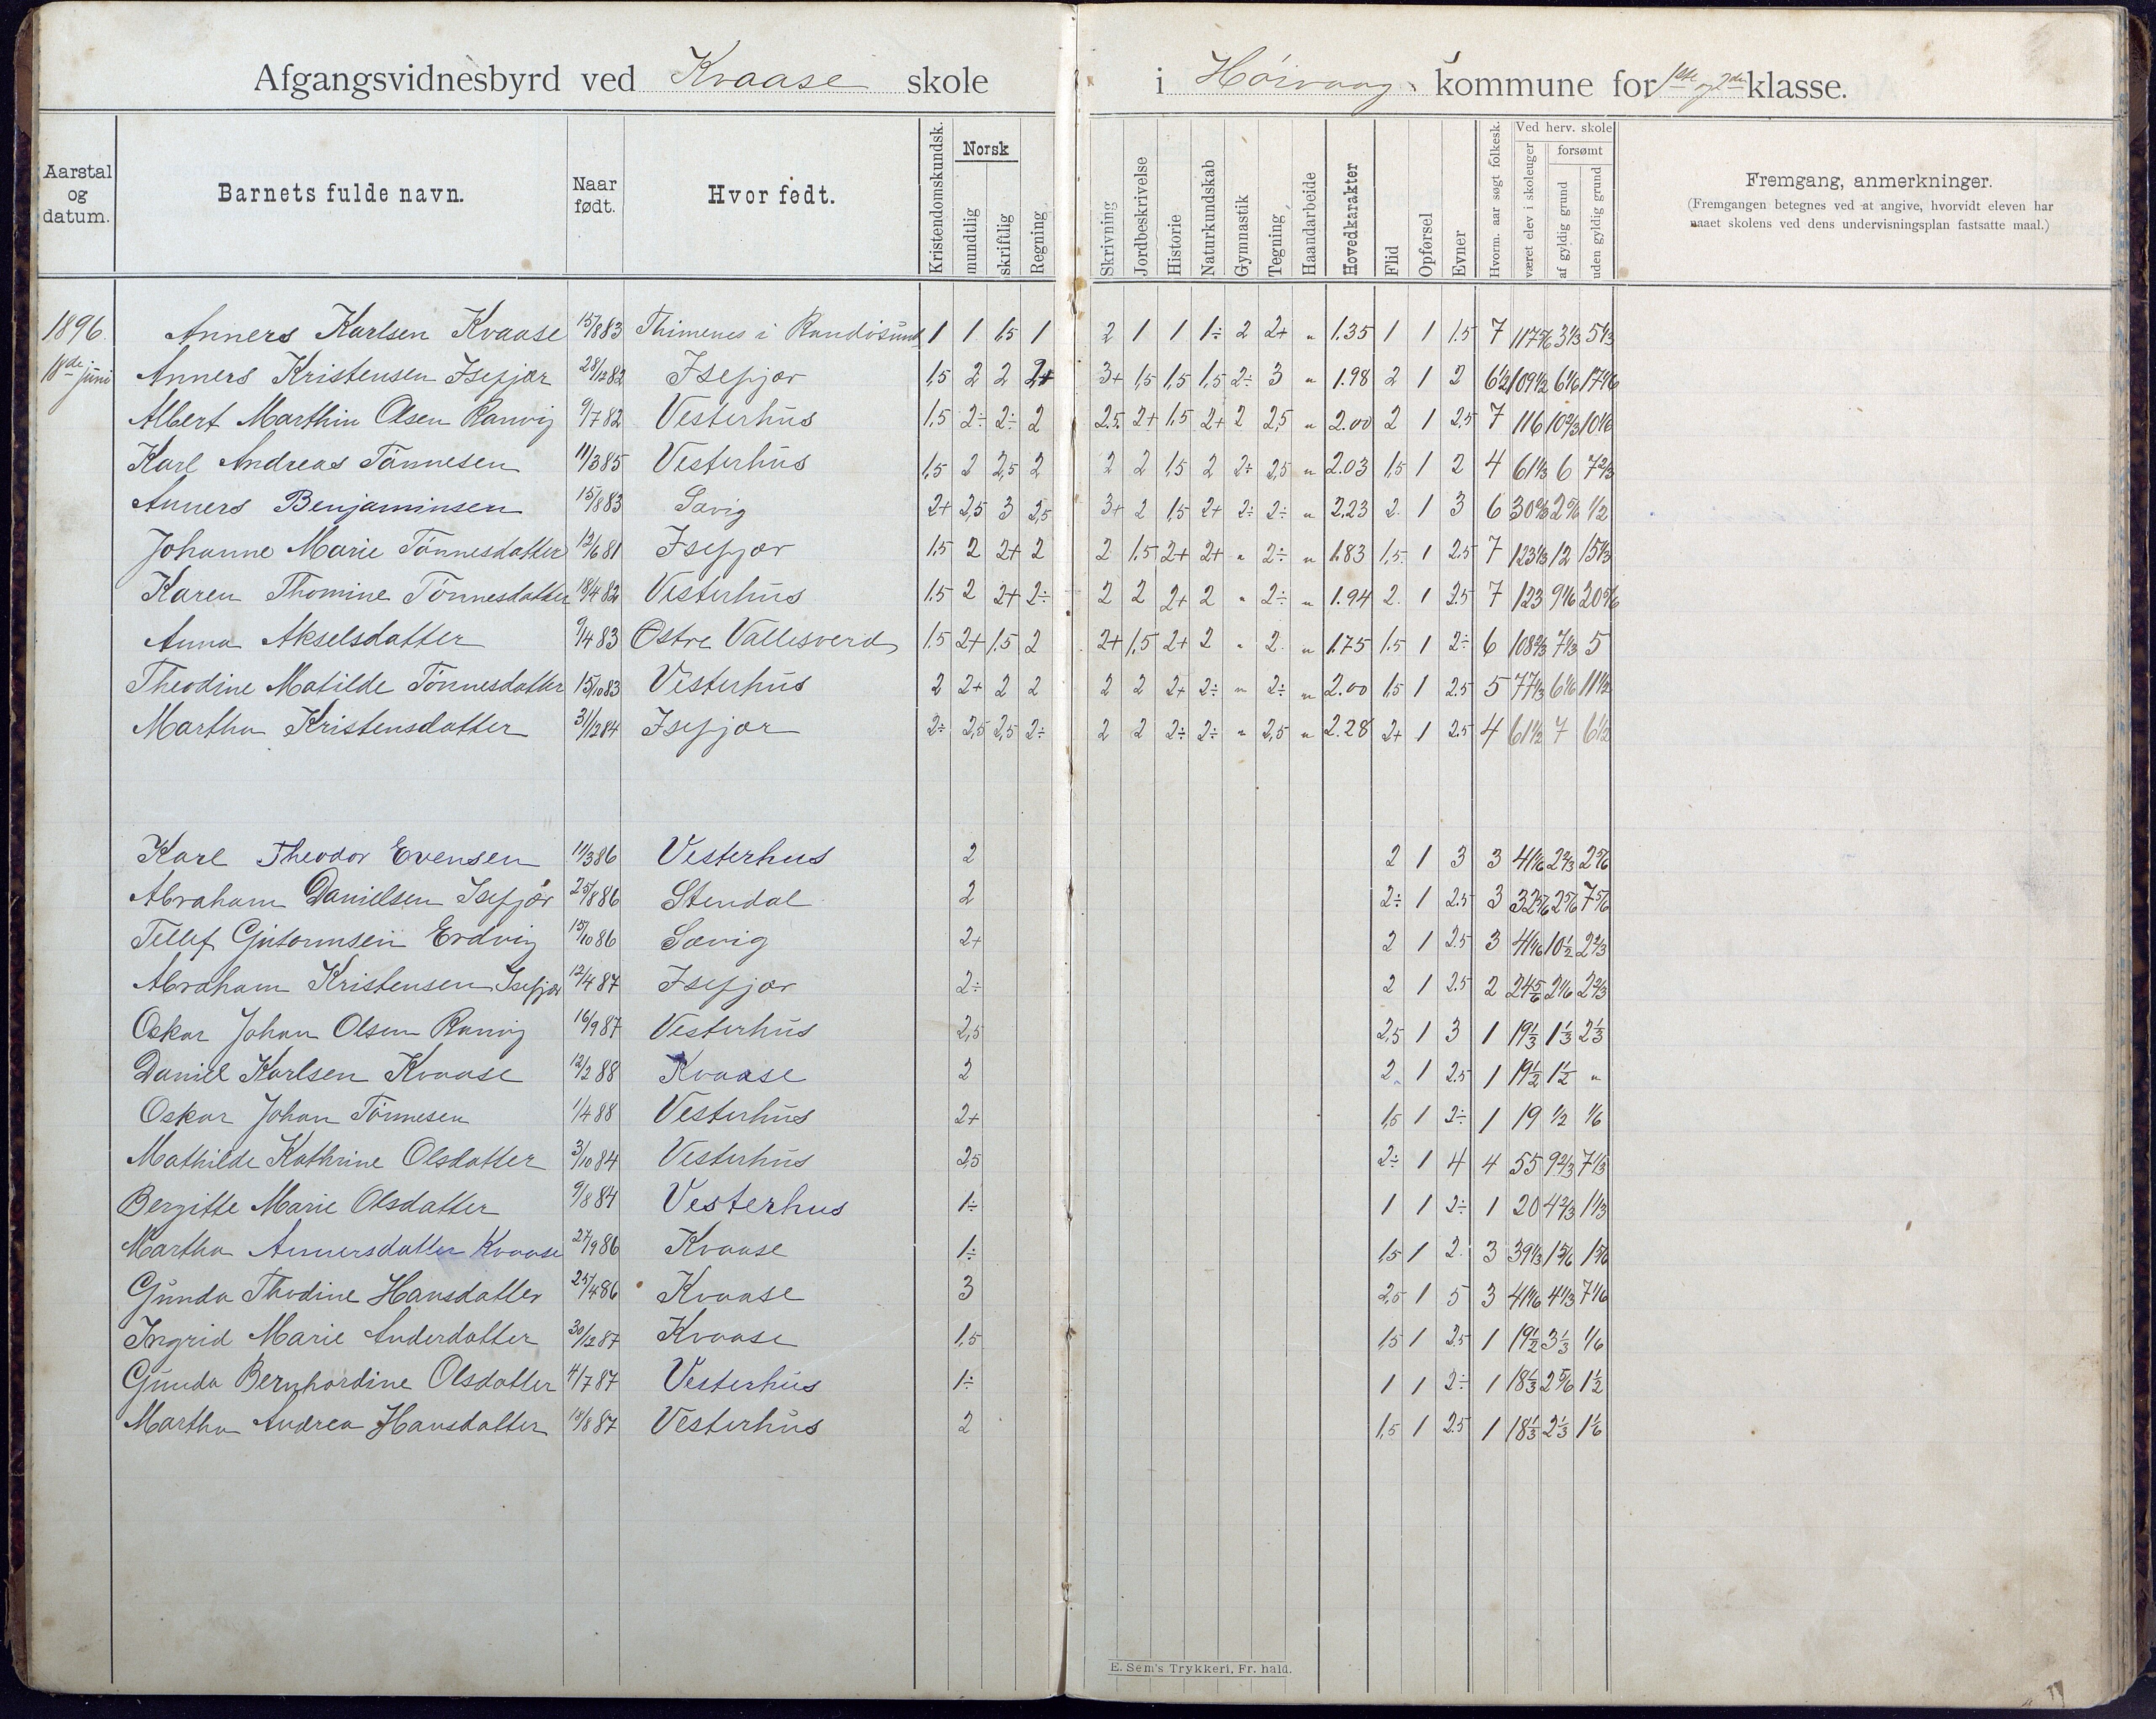 Afgangsvidnesbyrd ved Kvaase skole i Høivaag kommune for 1ste og 2den klasse.
Aarstal og datum. Barnets fulde navn. Naar født. Hvor født. Kristendomskundsk. Norsk mundtlig skriftlig Regning Skrivning Jordbeskrivelse Historie Naturkundskab Gymnastik Tegning Haandarbeide Hovedkarakter Flid Opførsel Evner Hvorm. aar søgt folkesk. Ved herv. skole været elev i skoleuger forsømt af gyldig grund uden gyldig grund Fremgang, anmerkninger.
(Fremgangen betegnes ved at angive, hvorvidt eleven har
naaet skolens ved dens undervisningsplan fastsatte maal.)
1896. Anners Karlsen Kvaase 15/8 83 Thimenes i Randøsund 1 1 1,5 1 2 1 1 1÷ 2 2+ " 1.35 1 1 1.5 7 117 5/6 3 1/3 5 1/3
18de juni Anners Kristensen Isefjær 28/12 82 Isefjær 1,5 2 2 2+ 3+ 1,5 1,5 1,5 2÷ 3 " 1.98 2 1 2 6 1/2 109 1/2 6 1/6 17 1/6
Albert Marthin Olsen Ranvig 9/7 82 Vesterhus 1,5 2÷ 2÷ 2 2.5 2+ 1,5 2+ 2 2,5 " 2.00 2 1 2,5 7 116 10 2/3 10 1/6
Karl Andreas Tønnesen 11/3 85 Vesterhus 1,5 2 2,5 2 2 2 1,5 2 2÷ 2,5 " 2.03 1,5 1 2 4 61 1/3 6 7 2/3
Anners Benjaminsen 15/8 83 Sævig 2+ 2,5 3 2,5 3+ 2 1,5 2+ 2÷ 2÷ " 2.23 2 1 3 6 30 2 5/6 1/2
Johanne Marie Tønnesdatter 12/6 81 Isefjær 1.5 2 2+ 2 2 1,5 2+ 2+ " 2÷ " 1.83 1,5 1 2.5 7 123 1/3 12 15 1/3
Karen Thomine Tønnesdatter 18/4 82 Vesterhus 1.5 2 2+ 2÷ 2 2 2+ 2 " 2÷ " 1.94 2 1 2.5 7 123 9 1/6 20 5/6
Anna Akselsdatter 9/4 83 Østre Vallesverd 1.5 2+ 1.5 2 2+ 1,5 2+ 2 " 2 " 1.75 1.5 1 2÷ 6 108 2/3 7 1/3 5
Theodine Matilde Tønnesdatter 15/10 83 Vesterhus 2 2+ 2 2 2 2 2+ 2÷ " 2÷ " 2.00 1,5 1 2.5 5 77 1/3 6 1/6 11 1/2
Martha Kristensdatter 31/12 84 Isefjær 2÷ 2,5 2,5 2÷ 2 2 2÷ 2÷ " 2,5 " 2.28 2+ 1 2.5 4 61 1/2 7 6 1/2
Karl Theodor Evensen 11/3 86 Vesterhus 2 2 1 3 3 41 1/6 2 2/3 2 5/6
Abraham Danielsen Isefjær 25/8 86 Stendal 2 2÷ 1 2.5 3 32 5/6 2 5/6 7 5/6
Tellef Gutormsen Erdvig 15/10 86 Sævig 2+ 2 1 2.5 3 41 1/6 10 1/2 2 2/3
Abraham Kristensen Isefjær 12/4 87 Isefjær 2÷ 2 1 2.5 2 24 5/6 2 1/6 2 2/3
Oskar Johan Olsen Ranvig 16/9 87 Vesterhus 2,5 2,5 1 3 1 19 1/3 1 1/3 2 1/3
Daniel Karlsen Kvaase 12/2 88 Kvaase 2 2 1 2.5 1 19 1/2 1 1/2 "
Oskar Johan Tønnesen 1/4 88 Vesterhus 2+ 1,5 1 2÷ 1 19 1/2 1/6
Mathilde Kathrine Olsdatter 3/10 84 Vesterhus 2,5 2÷ 1 4 4 55 9 2/3 7 1/3
Bergitte Marie Olsdatter 9/8 84 Vesterhus 1÷ 1 1 2÷ 1 20 4 2/3 1 1/3
Martha Annersdatter Kvaase 27/9 86 Kvaase 1÷ 1,5 1 2 3 39 1/3 1 5/6 1 5/6
Gunda Thodine Hansdatter 25/4 86 Kvaase 3 2,5 1 5 3 41 1/6 4 1/3 7 1/6
Ingrid Marie Anderdatter 30/12 87 Kvaase 1,5 1,5 1 2.5 1 19 1/2 3 1/3 1/6
Gunda Bernhardine Olsdatter 4/7 87 Vesterhus 1÷ 1 1 2÷ 1 18 1/3 2 5/6 1 1/2
Martha Andrea Hansdatter 18/8 87 Vesterhus 2 1,5 1 2.5 1 18 1/3 2 1/3 1 1/6
E. Sem's Trykkeri, Fr. hald.